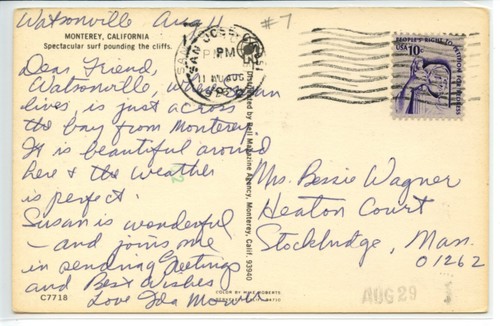 Watsonville Aug 11
#7
MONTEREY, CALIFORNIA
Spectacular surf pounding the cliffs.
Dear Friend,
Watsonville, where Susan
lives, is just across
the bay from Monterey
It is beautiful around
here & the weather
is perfect.
Susan is wonderful
— and joins me
in sending Greetings
and Best Wishes
Love Ida
C7718
SAN JOSE, CA
PM
11 AUG
PEOPLE'S RIGHT TO PETITION FOR REDRESS
USA 10c
Distributed by Bell Magazine Agency, Monterey, Calif. 93940
Mrs. Bessie Wagner
Heaton Court
Stockbridge, Mass.
01262
COLOR BY MIKE ROBERTS
AUG 29